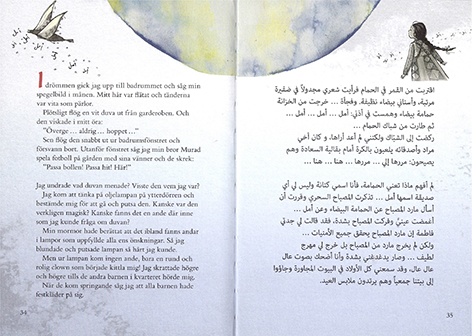 I drömmen gick jag upp till badrummet och såg min
spegelbild i månen. Mitt hår var flätat och tänderna
var vita som pärlor.
Plötsligt flög en vit duva ut från garderoben. Och
den viskade i mitt öra:
"Överge ... aldrig ... hoppet ..."
Sen flög den snabbt ut ur badrumsfönstret och
försvann bort. Utanför fönstret såg jag min bror Murad
spela fotboll på gården med sina vänner och de skrek:
"Passa bollen! Passa hit! Hit!"
Jag undrade vad duvan menade? Visste den vem jag var?
Jag kom att tänka på oljelampan på yttendörren och
bestämde mig för att gå och putsa den. Kanske var den
verkligen magisk? Kanske fanns det en ande där inne
som jag kunde fråga om duvan?
Min mormor hade berättat att det ibland fanns andar
i lampor som uppfyllde alla ens önskningar. Så jag
blundade och putsade lampan så hårt jag kunde.
Men ur lampan kom ingen ande, bara en rund och
rolig clown som började kittla mig! Jag skrattade högre
och högre tills de andra barnen i kvarteret kom in i mitt hus.
När de kom springande såg jag att alla barnen hade
festkläder på sig.
34
اقتربت من القمر في الحمام فرأيت شعري مجدولاً في ضفيرة
مرتبة، وأسناني بيضاء نظيفة. وفجأة ... خرجت من الخزانة
حمامة بيضاء وهمست في أذني: أمل ... أمل ... أمل ...
ثم طارت من شباك الحمام ...
ركضت إلى الشبّاك ولكنني لم أعد أراها، و كان أخي
مراد وأصدقائه يلعبون بالكرة أمام بقالية السعادة وهم
يصيحون: مررها إلي ... مررها ... هنا ... هنا ...
لم أفهم ماذا تعني الحمامة، فأنا اسمي كنانة وليس لي أي
صديقة اسمها أمل ... تذكرت المصباح السحري وقررت أن
أسأل مارد المصباح عن الحمامة البيضاء وعن أمل ...
أغمضت عينيّ وفركت المصباح بشدة، فقد قالت لي جدتي
فاطمة إن مارد المصباح يحقق جميع الأمنيات ...
ولكن لم يخرج مارد من المصباح بل خرج لي مهرج
لطيف ... وصار يدغدغني بشدة وأنا أضحك بصوت عال
عال عال، وقد سمعني كل الأولاد في البيوت المجاورة وجاؤوا
إلى بيتنا جميعاً وهم يرتدون ملابس العيد.
35